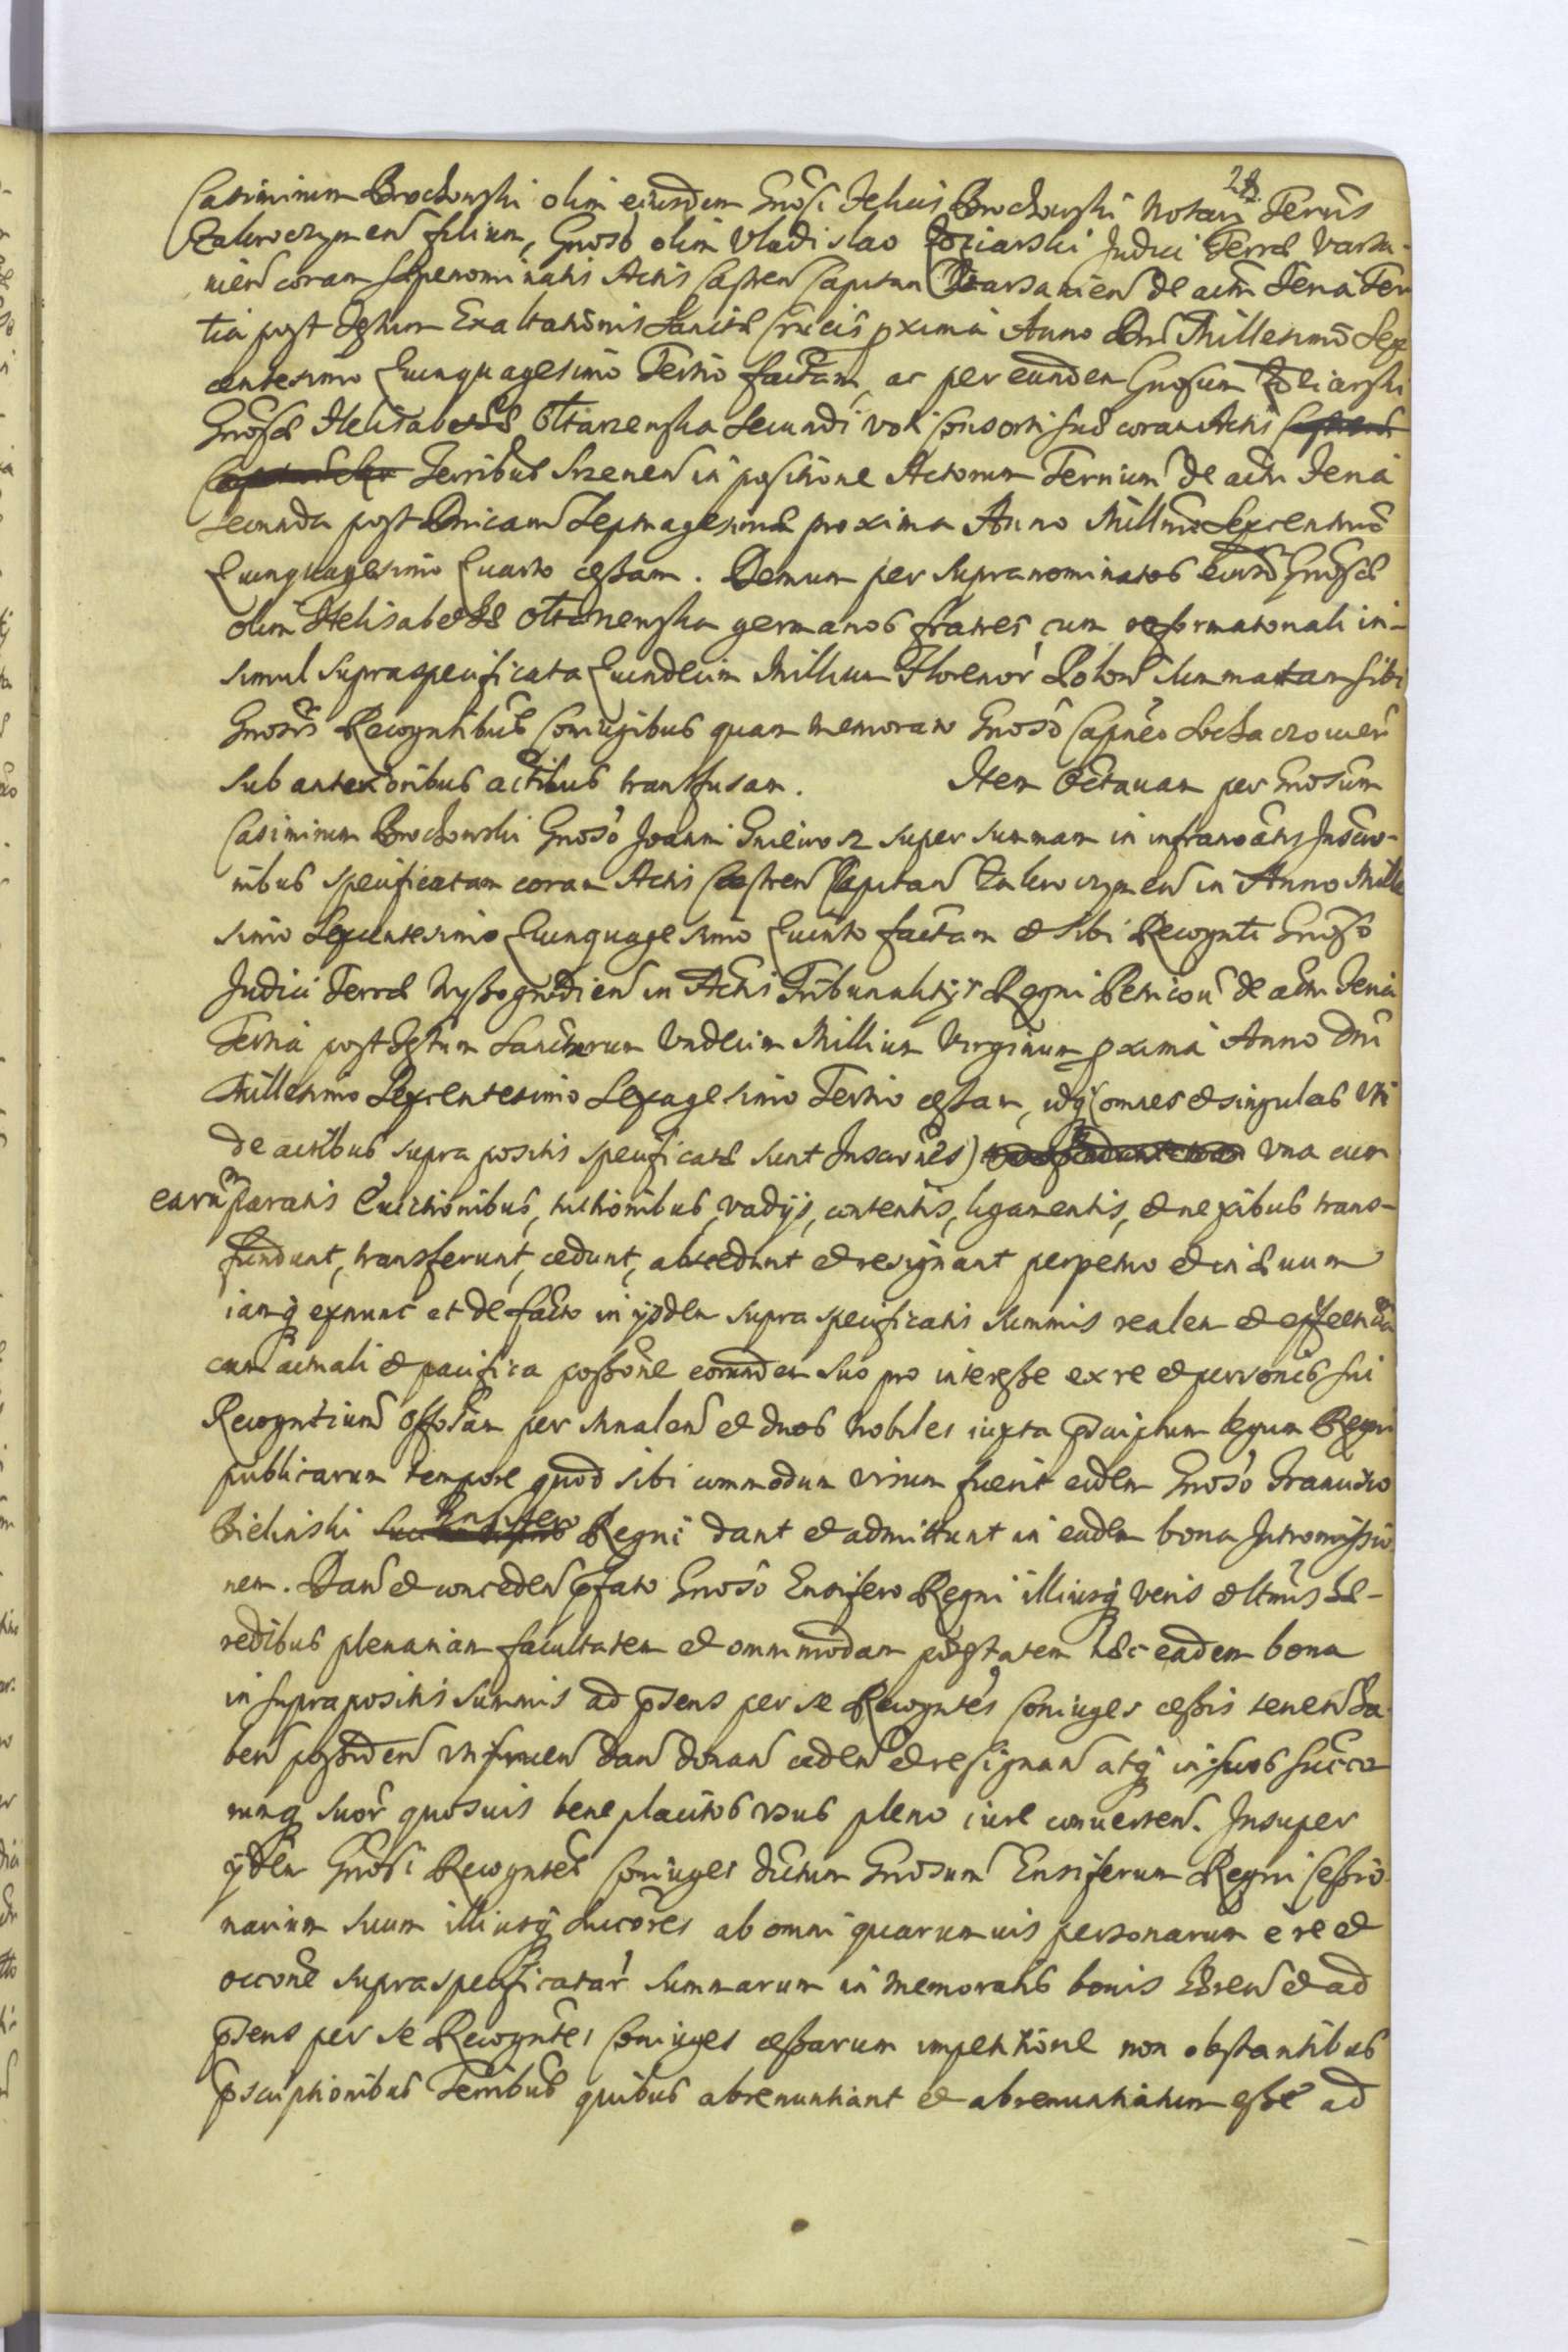 28
Casimirum Brochowski olim eiusdem Gnosi Felicis Brochowski Notarij Terris
Zakroczymen filium, Gnoso olim Vladislao Judici Terrae Varsa-
uien coram supenominatis Actis Castren Capitan Varsauien de actu Feria Ter
tia post Festum Exaltationis Sanctae Crucis pxima Anno Dni Millesimo Sex
centesimo Quinquagesimo Tertio factam, ac per eundem Gnosum
Gnosae Helisabethae Ołtarzewska secundi voti Consorti suae coram Actis Castren
Terribus Srzenen in positione Actorum Ternium de actu Feria
Secunda post Dnicam Septuagesimae proxima Anno Millmo Sexcentmo
Quinquagesimo Quarto cessam. Demum per supranominatos eiusd Gnosae
olim Helisabethae Ołtarzewska germanos fratres cum reformatonali in-
simul supraspecificata Quindecim Millium Florenor Polon summa tam sibi
Gnosis Recogntibus Coniugibus quam memorato Gnoso Capneo Sochaczouien
sub anterioribus actibus transfusam. Item Octauam per Gnosum
Casimirum Brochowski Gnoso Joanni Gniewosz super summam in infranoatis Inscrio-
nibus specificatam coram Actis Castren Capitan Zakroczymen in Anno Mille
simo Sexcentesimo Quinquagesimo Quinto factam et sibi Recognti Gnoso
Judici Terrae Wyssogrodien in Actis Tribunalitijs Regni Petricou de actu Feria
Tertia post Festum Sanctarum Vndecim Millium Virginum pxima Anno Dni
Millesimo Sexcentesimo Sexagesimo Tertio cessam, idq (omnes et singulas vti
de actibus supra positis specificatae sunt Inscrnes) vna cum
earum paratis Euictionibus, tuitionibus, vadijs, contentis, ligamentis, et nexibus trans-
fundunt, transferunt, cedunt, abscedunt et resignant perpetuo et in aeuum
iamq exnunc et de facto in ijsdem supra specificatis summis realem et effectua
cum actuali et pacifica possone eorundem suo pro interesse ex re et personis sui
Recogntium Offosam per Mnalem et duos Nobiles iuxta pscriptum legum Regni
publicarum tempore quod sibi commodum visum fuerit eidem Gnoso Francisco
Bielinski Ensifero Regni dant et admittunt in eadem bona Intromissio
nem. Dan et conceden pfato Gnoso Ensifero Regni illiusq veris et ltmis hae-
redibus plenariam facultatem et omnimodam ptestatem haec eadem bona
in supra positis summis ad psens per se Recogntes Coniuges cessis tenen ha
ben possiden vtifruen dan donan ceden et resignan atq in suos succo
rumq suor quosuis beneplacitos vsus pleno iure conuerten. Insuper
ijdem Gnosi Recogntes Coniuges dictum Gnosum Ensiferum Regni Cessio-
narium suum illiusq succores ab omni quarumuis personarum e re et
occone supraspecificatar summarum in memoratis bonis haeren et ad
psens per se Recogntes Coniuges cessarum impetitione non obstantibus
pscriptionibus Terribus quibus abrenuntiant et abrenuntiatum esse ad